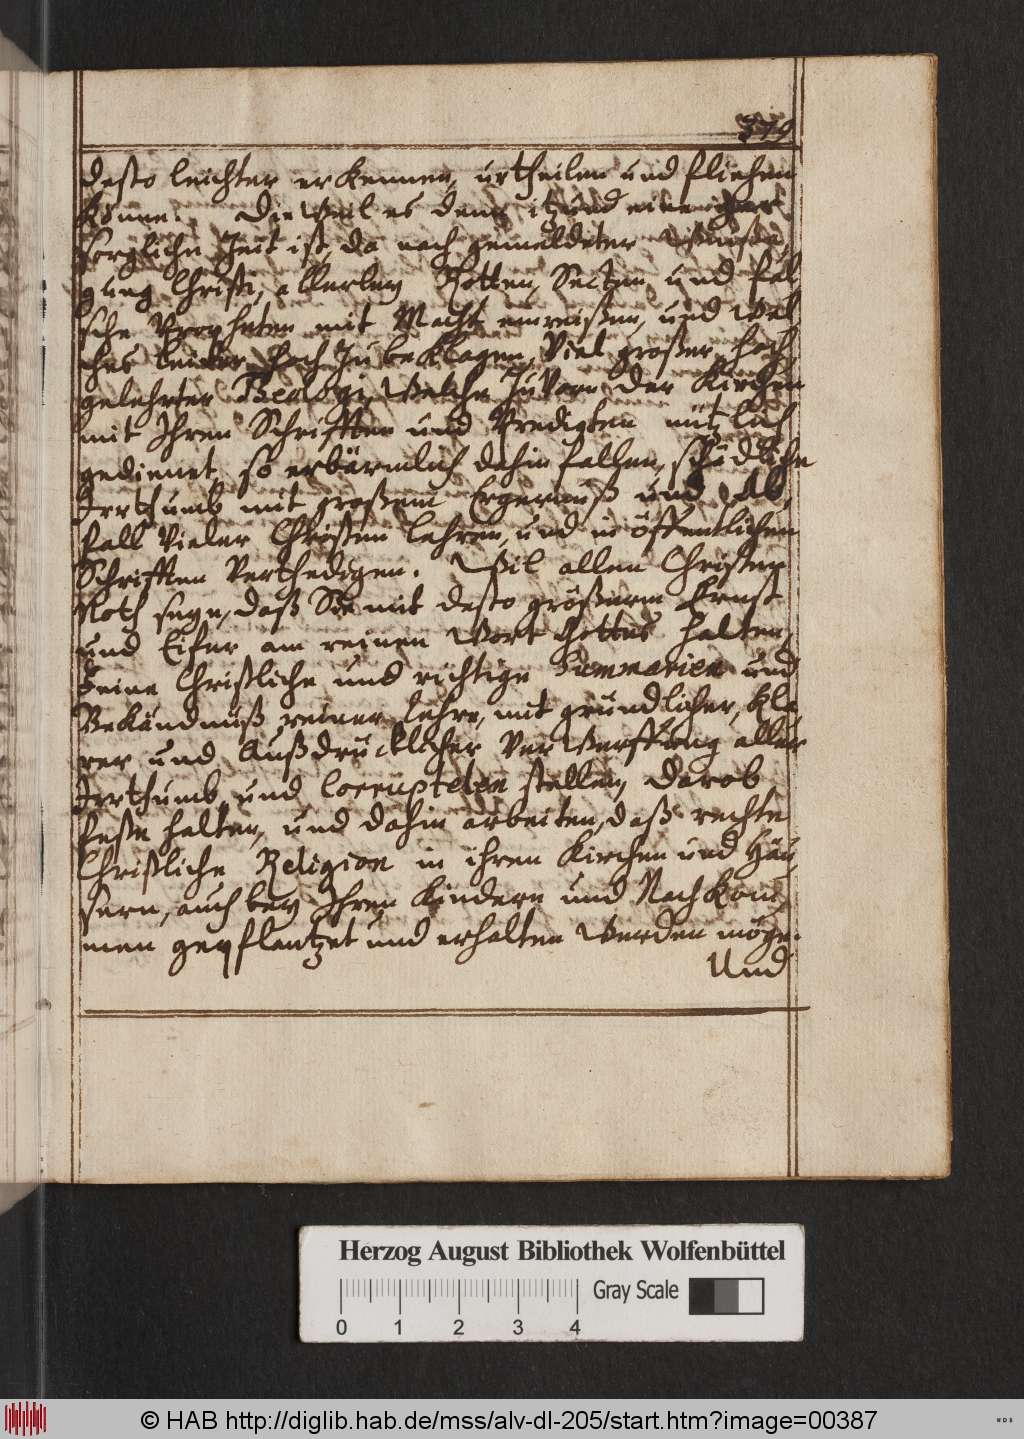 379
desto leichter erkennen, urtheilen und fliehen
könne. Die weil es dann itzund eine gar
sorgliche Zeit ist, da nach gemeldeter
gung Christi, allerley Rotten, Secten und fal
sche Propheten mit Macht einreißen, und wel
ches leider hoch zu beklagen, viel großer hoch
gelehrter Theologi, welche zuvorn der Kirchen
mit Ihren Schrifften und Predigten nützlich
gedienet, so erbärmlich dahin fallen, schädliche
Irrthumb mit großem Ergernuß und Ab,
fall vieler Christen lehren, und in öffentlichen
Schrifften verthedigen. Wil allen Christen
Noth seyn, daß Sie mit desto größerm Ernst
und Eifer am reinen Wort Gottes halten,
Feine Christliche und richtige Summarien und
Bekändnuß reiner Lehre, mit gründlicher, kla
rer und Außdrücklicher Verwerffung aller
Irrthumb und Corruptelen stellen, darob
feste halten, und dahin arbeiten, daß rechte
Christliche Religion in ihren Kirchen und Häu,
sern, auch bey Ihren Kindern und Nachkom,
men gepflantzet und erhalten werden möge.
Und
Herzog August Bibliothek Wolfenbüttel
Gray Scale
0 1 2 3 4
© HAB http://diglib.hab.de/mss/alv-dl-205/start.htm?image=00387